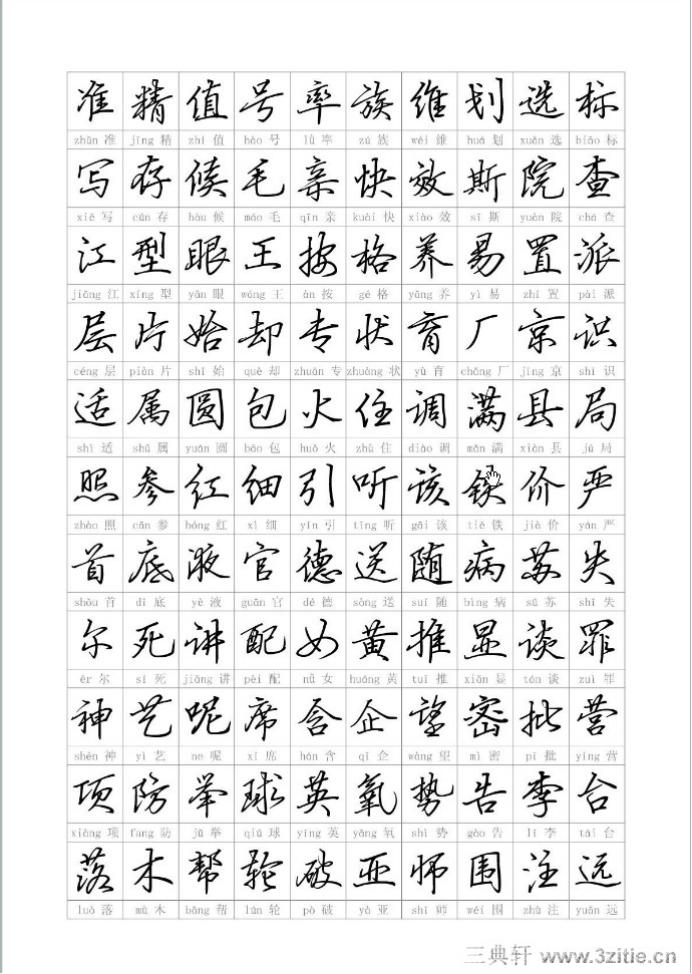 准 精 值 号 率 族 维 划 选 标
zhǔn 准 jīng 精 zhí 值 hào 号 lǜ 率 zú 族 wéi 维 huá 划 xuǎn 选 biāo 标
写 存 候 毛 亲 快 效 斯 院 查
xiě 写 cún 存 hòu 候 máo 毛 qīn 亲 kuài 快 xiào 效 sī 斯 yuàn 院 chá 查
江 型 眼 王 按 格 养 易 置 派
jiāng 江 xíng 型 yǎn 眼 wáng 王 àn 按 gé 格 yǎng 养 yì 易 zhì 置 pài 派
层 片 始 却 专 状 育 厂 京 识
céng 层 piàn 片 shǐ 始 què 却 zhuān 专 zhuàng 状 yù 育 chǎng 厂 jīng 京 shí 识
适 属 圆 包 火 住 调 满 县 局
shì 适 shǔ 属 yuán 圆 bāo 包 huǒ 火 zhù 住 diào 调 mǎn 满 xiàn 县 jú 局
照 参 红 细 引 听 该 铁 价 严
zhào 照 cān 参 hóng 红 xì 细 yǐn 引 tīng 听 gāi 该 tiě 铁 jià 价 yán 严
首 底 液 官 德 送 随 病 苏 失
shǒu 首 dǐ 底 yè 液 guān 官 dé 德 sòng 送 suí 随 bìng 病 sū 苏 shī 失
尔 死 讲 配 女 黄 推 显 谈 罪
ěr 尔 sǐ 死 jiǎng 讲 pèi 配 nǚ 女 huáng 黄 tuī 推 xiǎn 显 tán 谈 zuì 罪
神 艺 呢 席 含 企 望 密 批 营
shén 神 yì 艺 ne 呢 xí 席 hán 含 qǐ 企 wàng 望 mì 密 pī 批 yíng 营
项 防 举 球 英 氧 势 告 李 台
xiàng 项 fáng 防 jǔ 举 qiú 球 yīng 英 yǎng 氧 shì 势 gào 告 lǐ 李 tái 台
落 木 帮 轮 破 亚 师 围 注 远
luò 落 mù 木 bāng 帮 lún 轮 pò 破 yà 亚 shī 师 wéi 围 zhù 注 yuǎn 远
三典轩 www.3zitie.cn